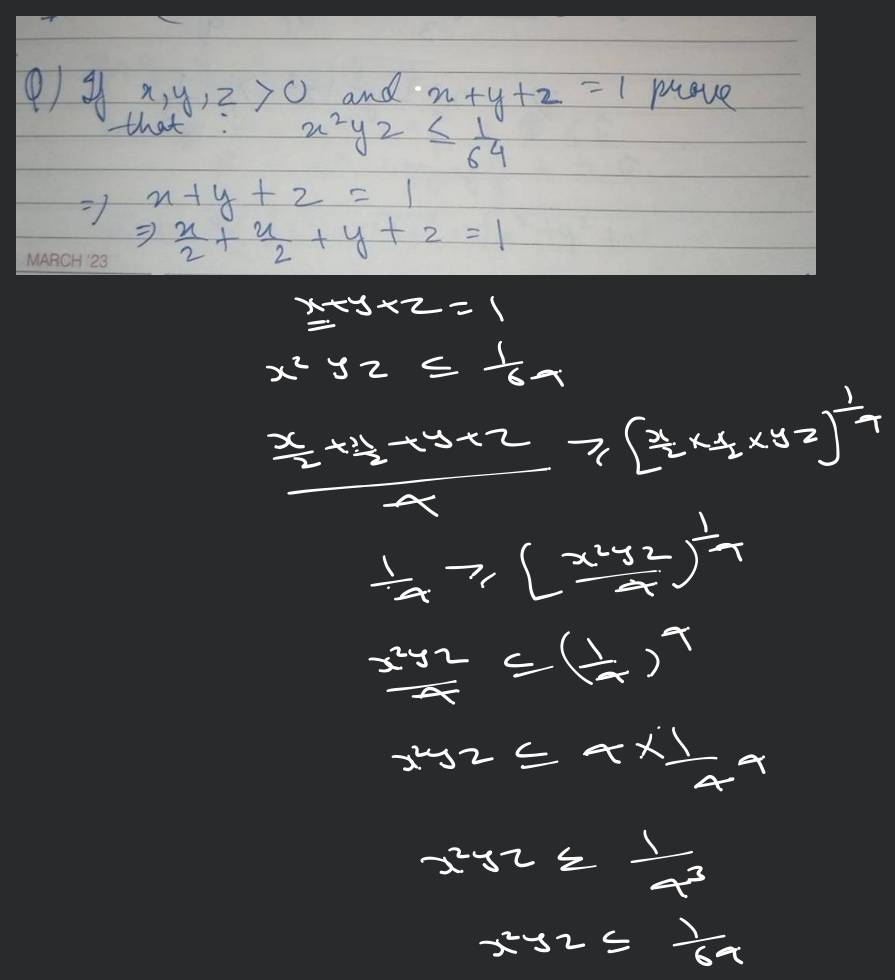 Q) If x, y, z > 0 and x + y + z = 1 prove
that : x²yz ≤ 1/64
=> x + y + z = 1
=> x/2 + x/2 + y + z = 1
MARCH '23
x + y + z = 1
x² yz ≤ 1/64
(x/2 + x/2 + y + z)/4 ≥ [x/2 × x/2 × yz]^(1/4)
1/4 ≥ [x²yz/4)^(1/4)
x²yz/4 ≤ (1/4)^4
x²yz ≤ 4 × 1/4^4
x²yz ≤ 1/4³
x²yz ≤ 1/64